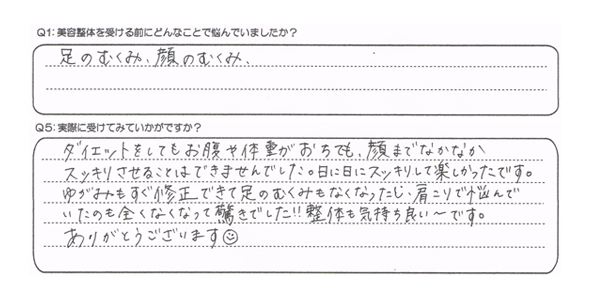 Q1:美容整体を受ける前にどんなことで悩んでいましたか？
足のむくみ、顔のむくみ、
Q5:実際に受けてみていかがですか？
ダイエットをしてもお腹や体重がおちても、顔までなかなか
スッキリさせることはできませんでした。日に日にスッキリして楽しかったです。
ゆがみもすぐ修正できて足のむくみもなくなったし、肩こりで悩んで
いたのも全くなくなって驚きでした!!整体も気持ち良い〜です。
ありがとうございます☺